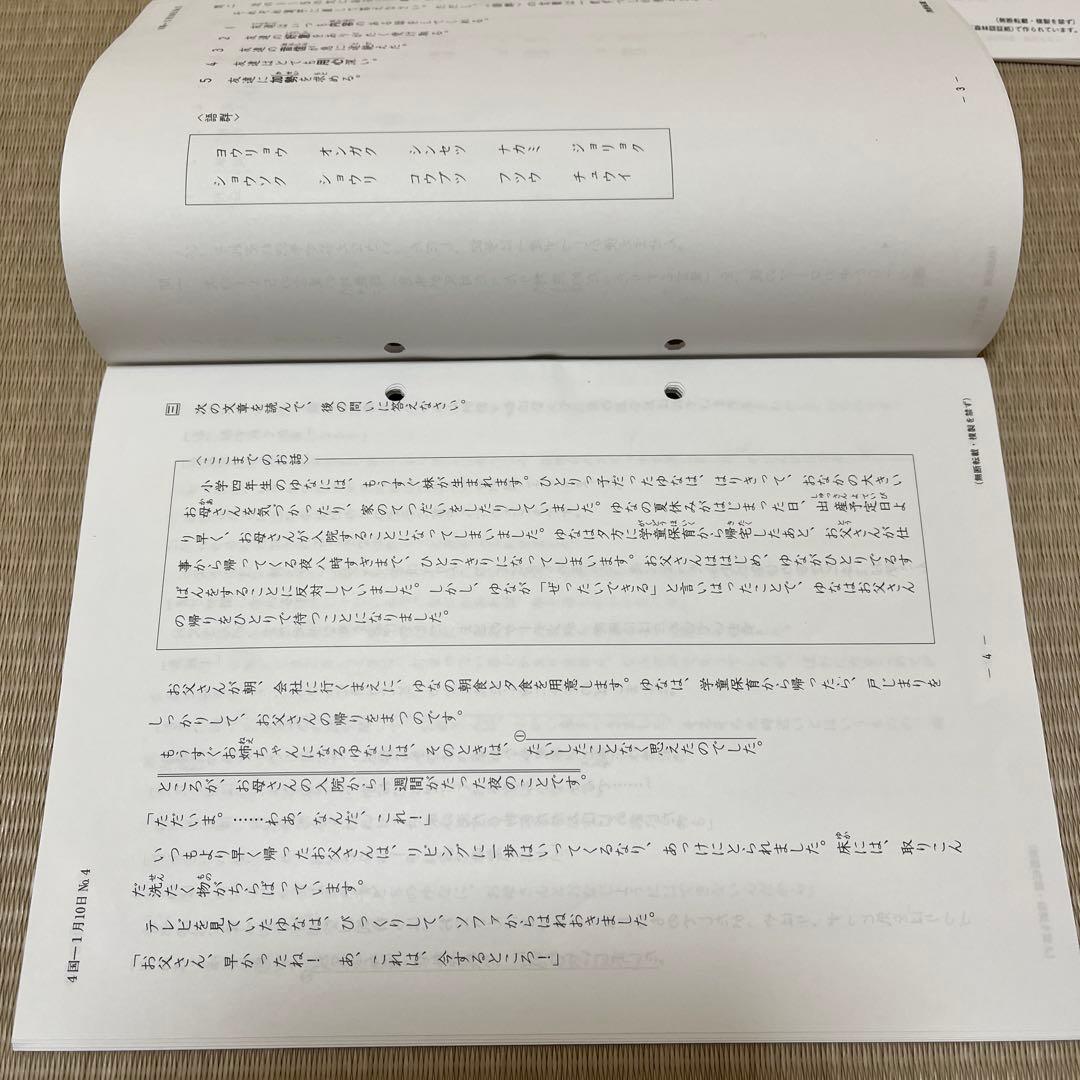 1 友達はいつも
2 友達の
3 友達の
4 友達はとても用心深い。
5 友達に加勢を求める。
〈語群〉
ヨウリョウ オンガク シンセツ ナカミ ジョリョク
ショウソク ショウリ コウブツ フツウ チュウイ
― 3 ―
(無断転載・複製を禁ず)
三 次の文章を読んで、後の問いに答えなさい。
〈ここまでのお話〉
小学四年生のゆなには、もうすぐ妹が生まれます。ひとりっ子だったゆなは、はりきって、おなかの大きい
お母さんを気づかったり、家のてつだいをしたりしていました。ゆなの夏休みがはじまった日、出産予定日よ
り早く、お母さんが入院することになってしまいました。ゆなは夕方に学童保育から帰宅したあと、お父さんが仕
事から帰ってくる夜八時すぎまで、ひとりきりになってしまいます。お父さんははじめ、ゆながひとりでるす
ばんをすることに反対していました。しかし、ゆなが「ぜったいできる」と言いはったことで、ゆなはお父さん
の帰りをひとりで待つことになりました。
お父さんが朝、会社に行くまえに、ゆなの朝食と夕食を用意します。ゆなは、学童保育から帰ったら、戸じまりを
しっかりして、お父さんの帰りをまつのです。
もうすぐお姉ちゃんになるゆなには、そのときは、①たいしたことなく思えたのでした。
ところが、お母さんの入院から一週間がたった夜のことです。
「ただいま。……わあ、なんだ、これ！」
いつもより早く帰ったお父さんは、リビングに一歩はいってくるなり、あっけにとられました。床には、取りこん
だ洗たく物がちらばっています。
テレビを見ていたゆなは、びっくりして、ソファからはねおきました。
「お父さん、早かったね！ あ、これは、今するところ！」
― 4 ―
(無断転載・複製を禁ず)
4国―1月10日 №4